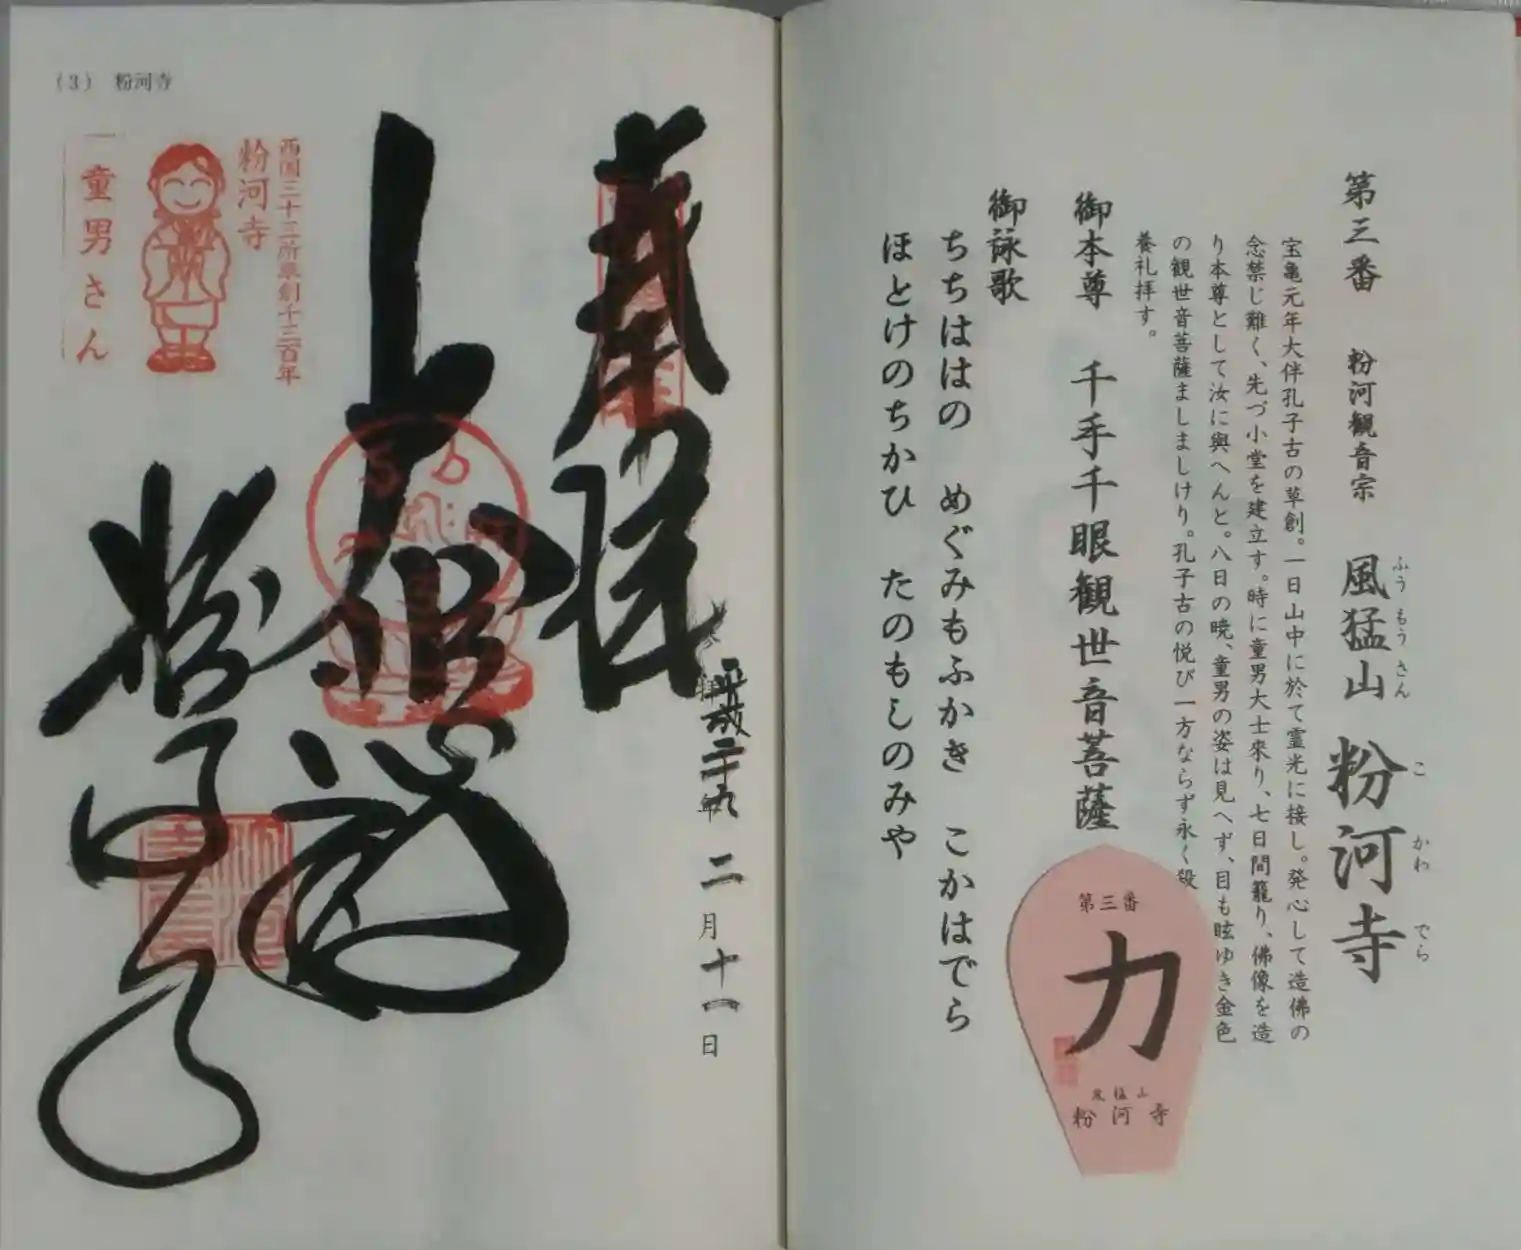 第三番 粉河観音宗 風猛山 粉河寺
ふうもうさん こかわでら
宝亀元年大伴孔子古の草創。一日山中に於て霊光に接し。発心して造佛の
念禁じ難く、先づ小堂を建立す。時に童男大士来り、七日間籠り、佛像を造
り本尊として汝に與へんと。八日の暁、童男の姿は見へず、目も眩ゆき金色
の観世音菩薩ましましけり。孔子古の悦び一方ならず永く殺
養礼拝す。
御本尊 千手千眼観世音菩薩
御詠歌
ちちははの めぐみもふかき こかはでら
ほとけのちかひ たのもしのみや
第三番
力
風猛山
粉河寺
(3) 粉河寺
奉拝
平成二十九年 二月十一日
西国三十三所草創千三百年
粉河寺
童男さん
粉河寺